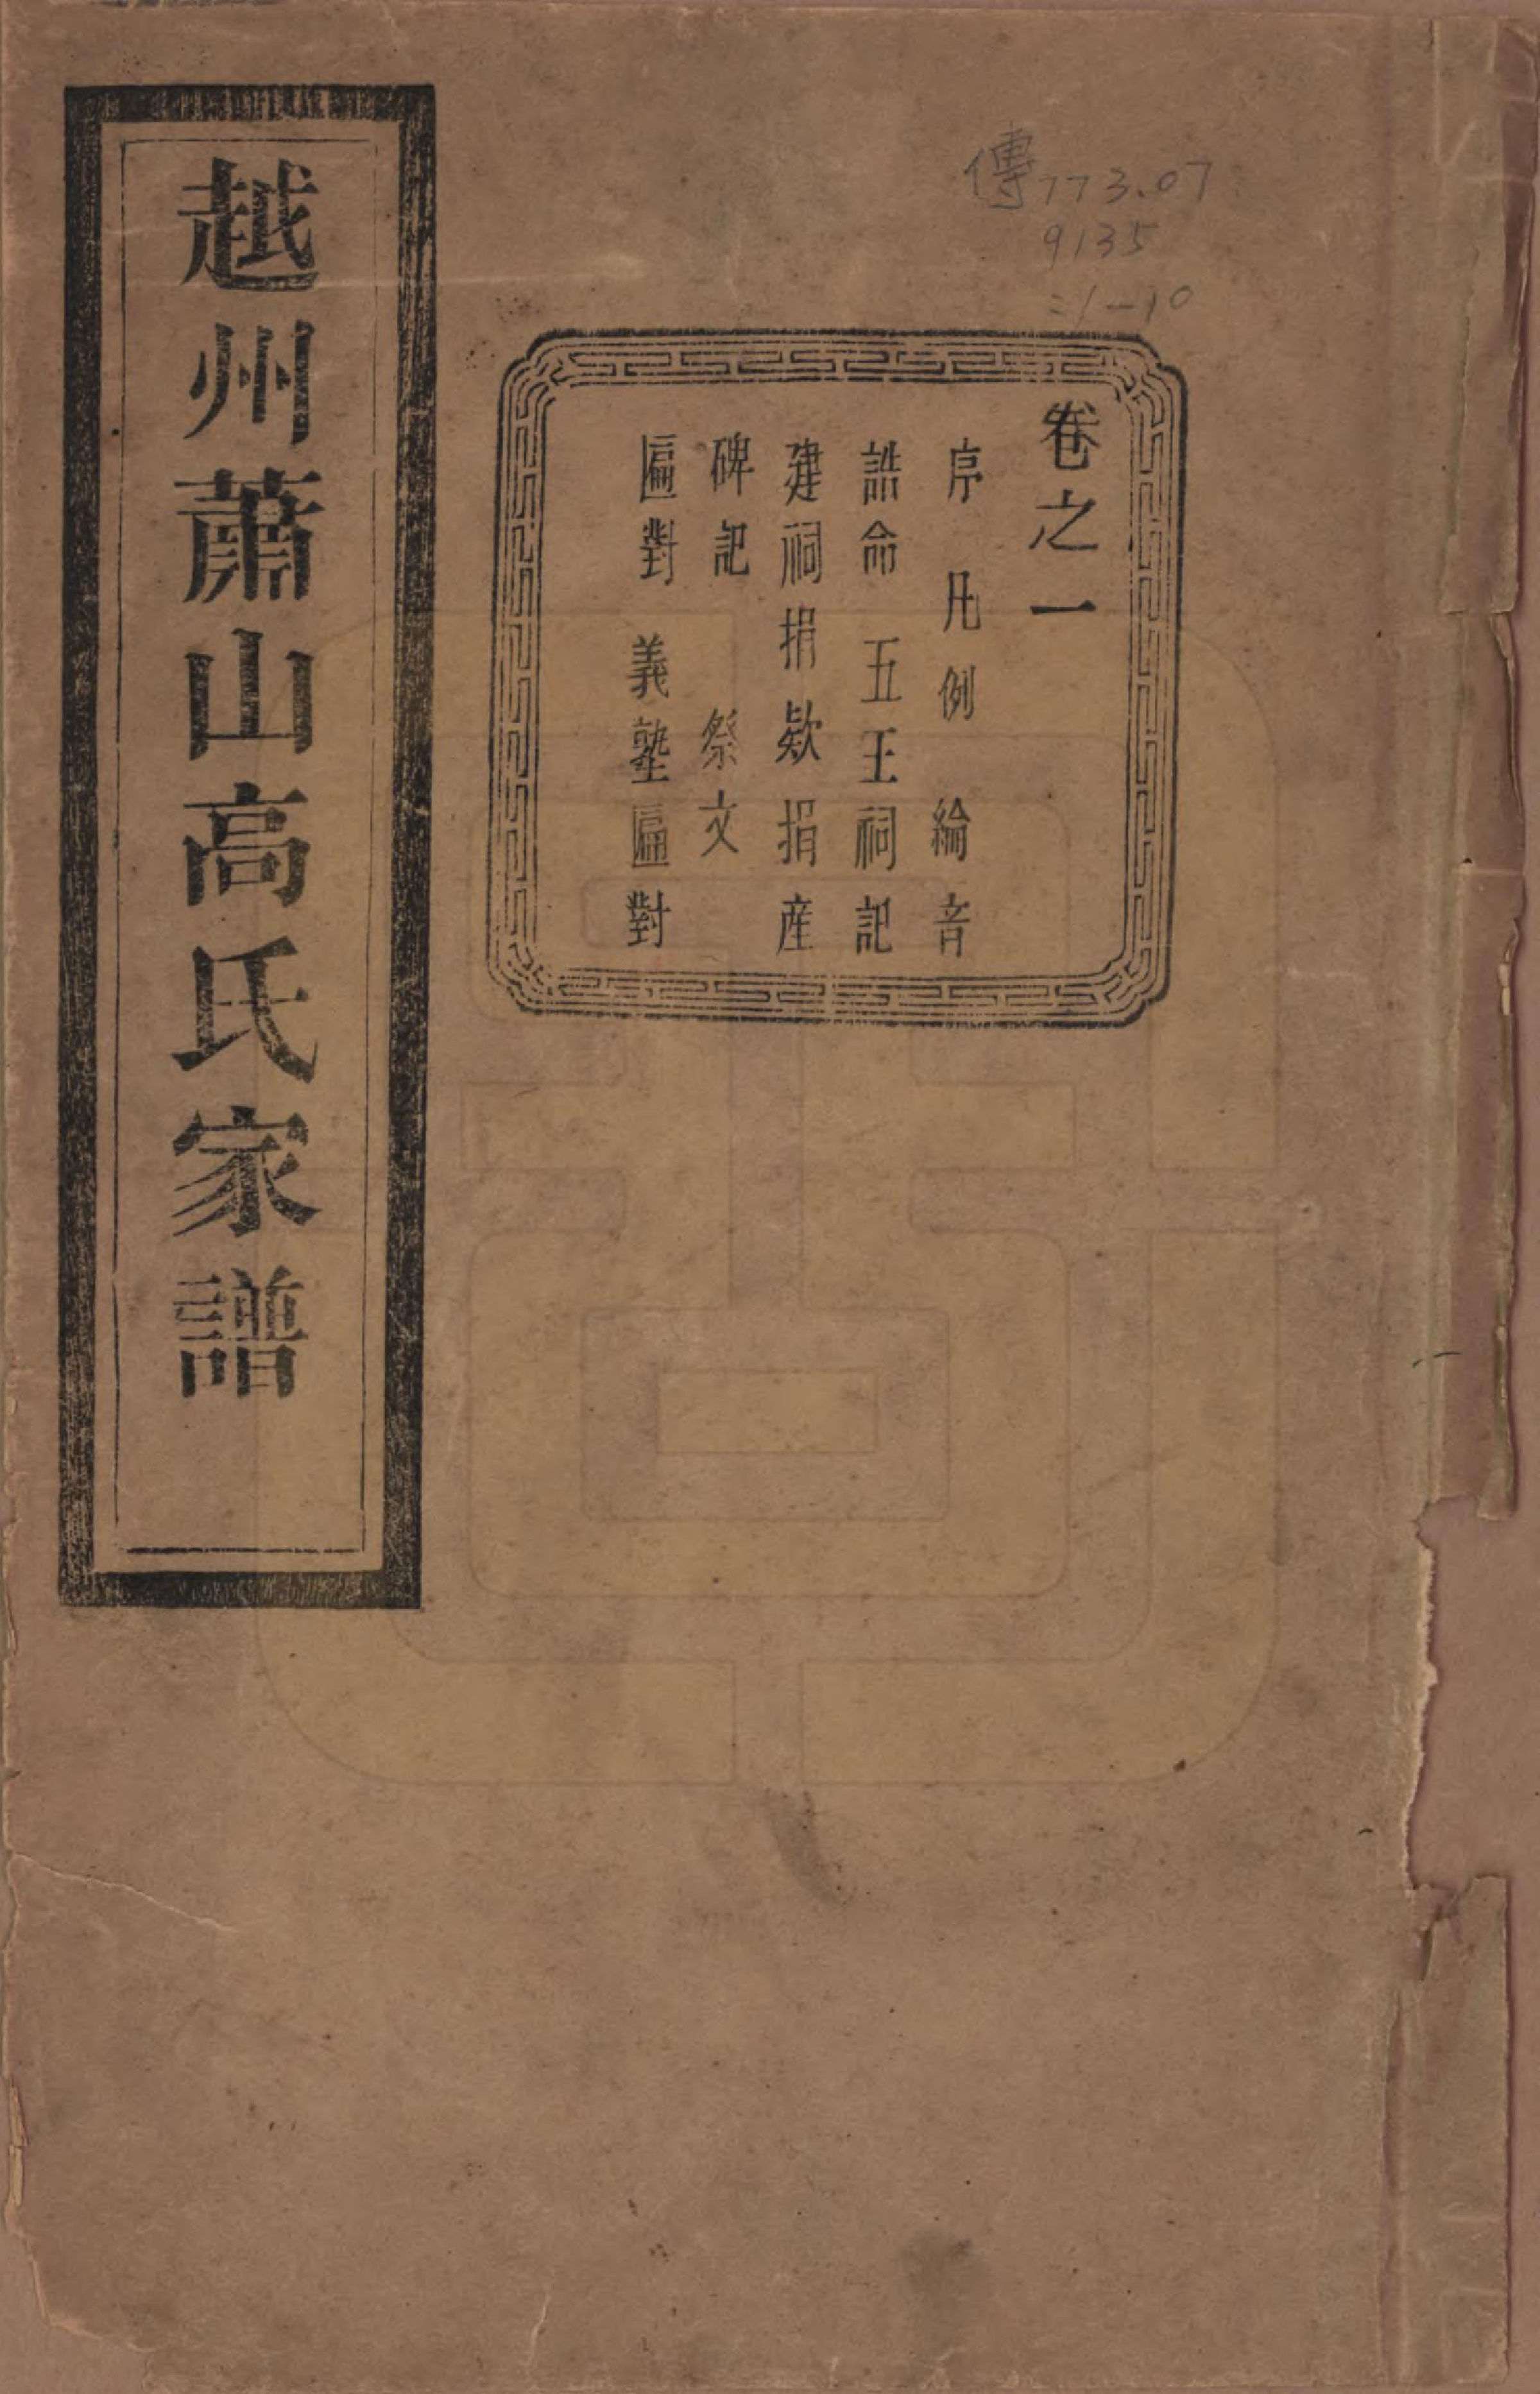 傳773.07
9135
:1-10
卷之一
序 凡例 綸音
誥命 五王祠記
建祠捐欵捐産
碑記 祭文
匾對 義塾匾對
越州蕭山高氏家譜